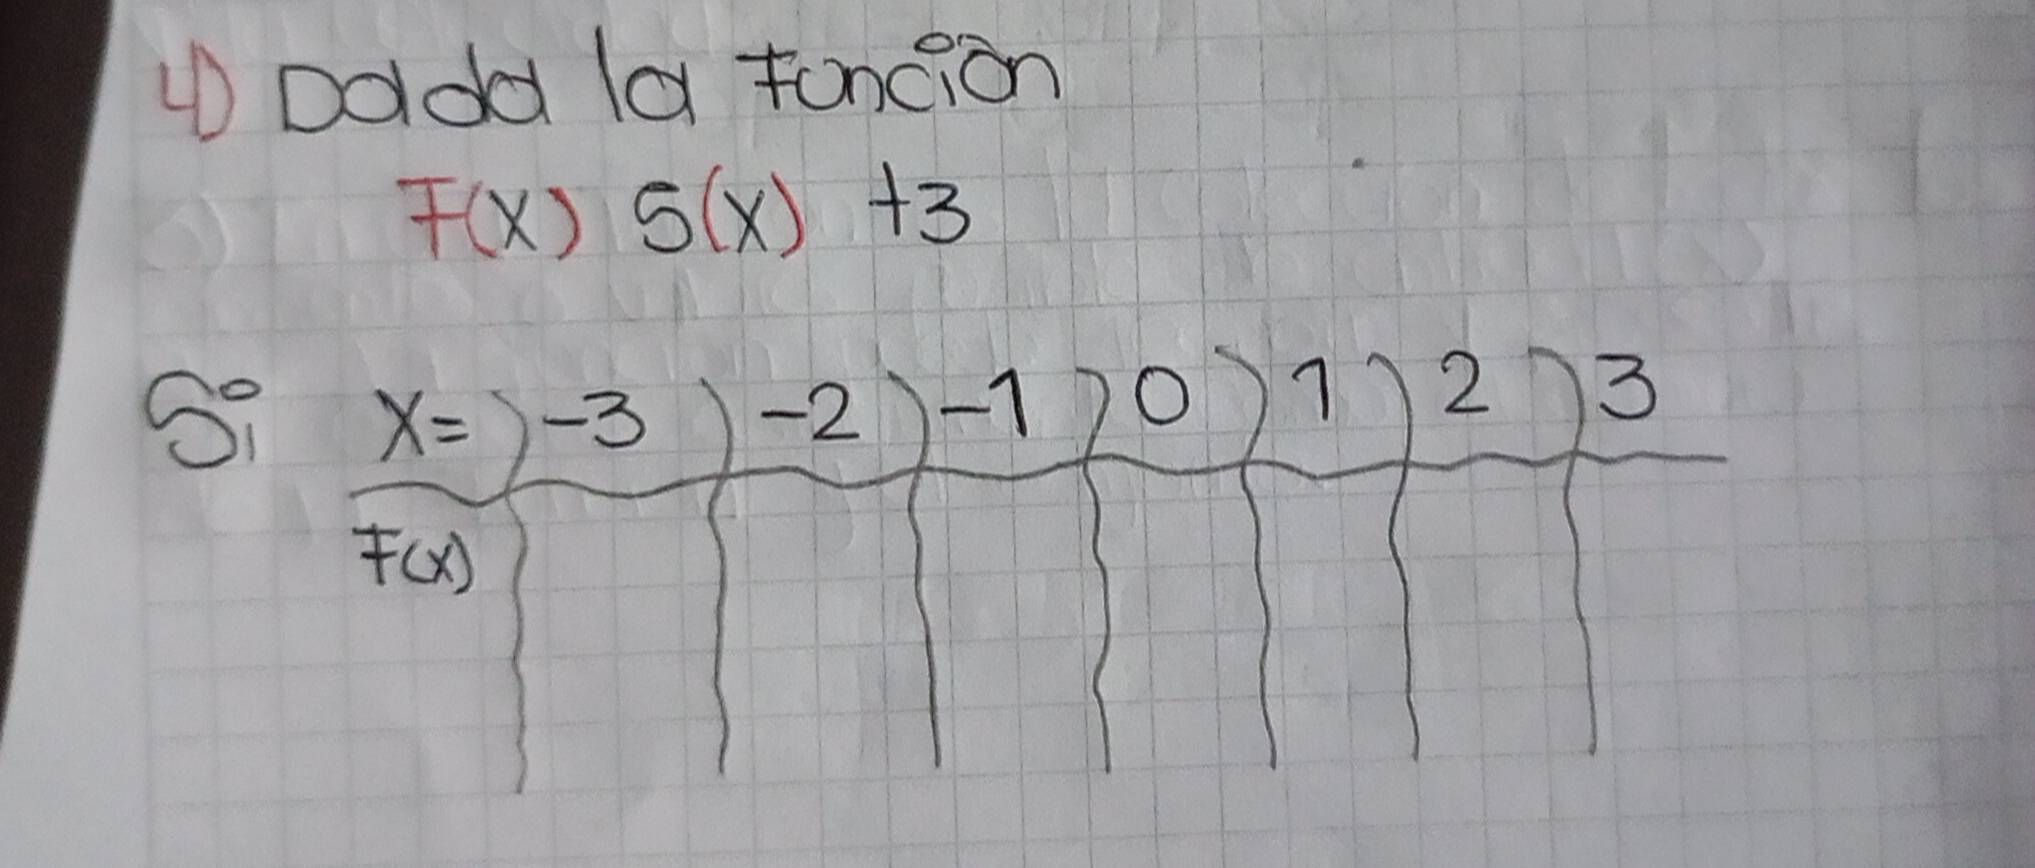 4) Dada la función
F(x) 5(x) +3
Si x= -3 -2 -1 0 1 2 3
F(x)